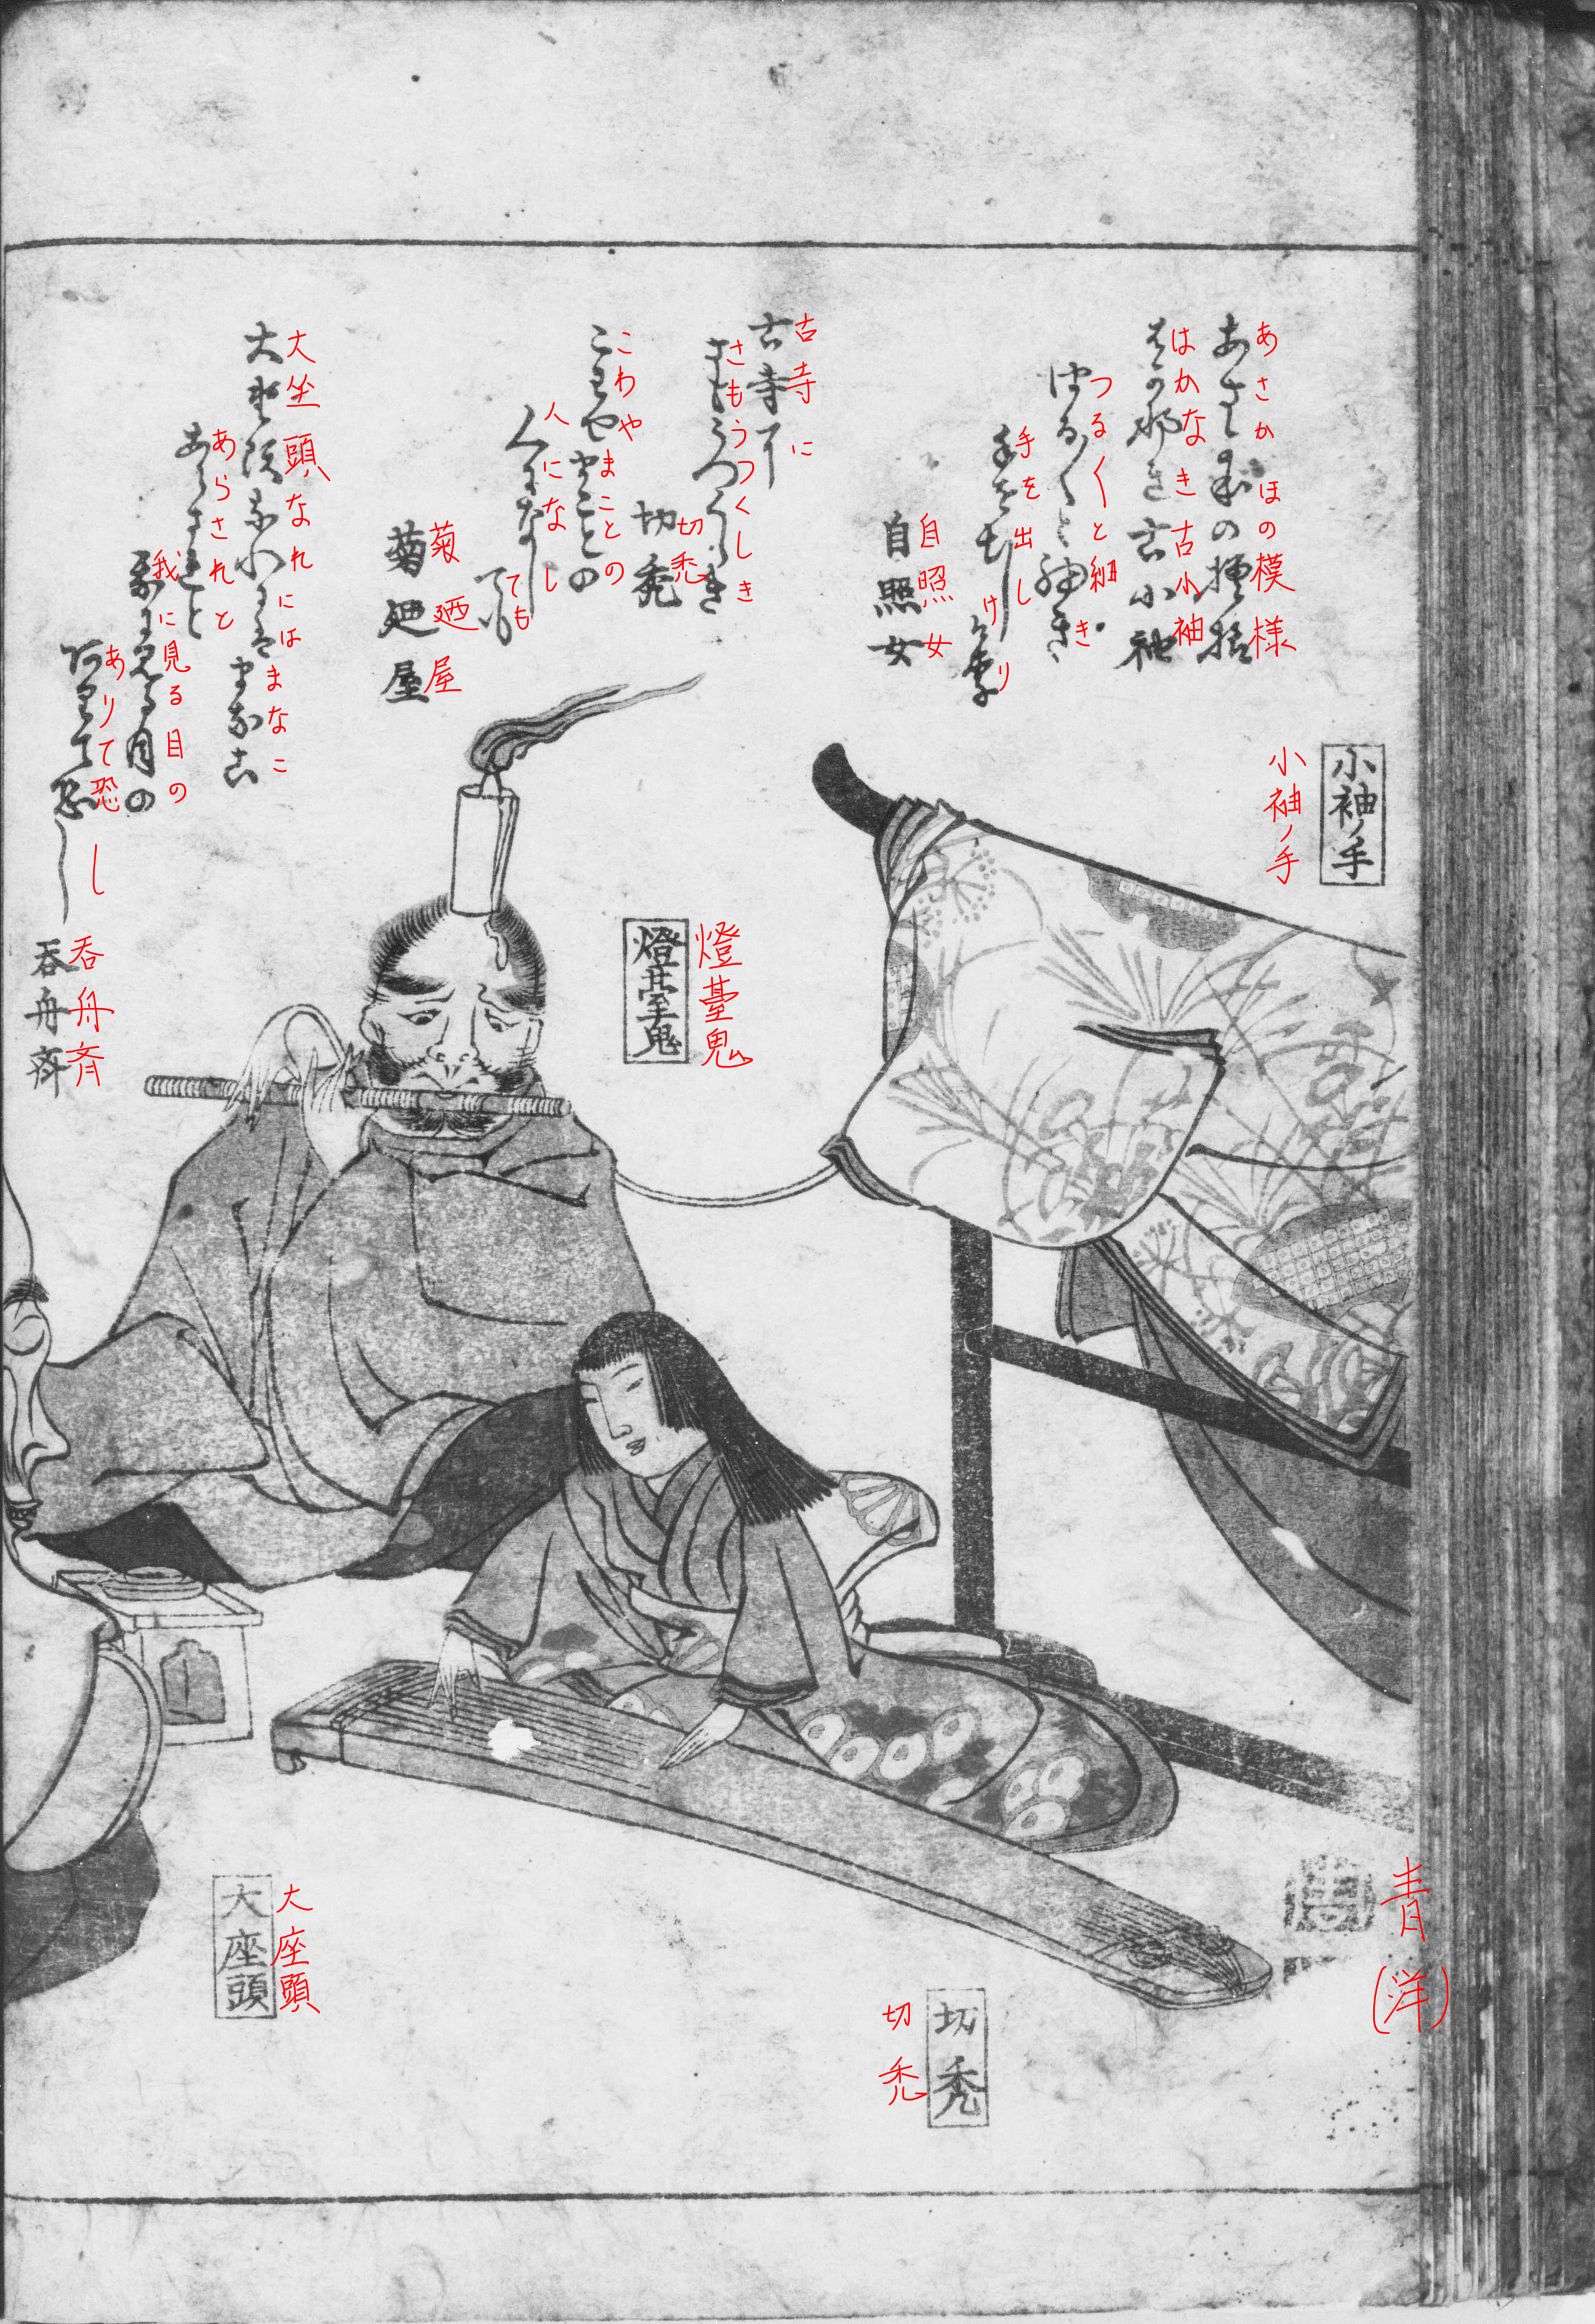 あさかほの模様
はかなき古小袖
つる〱と細き
手を出しけり
自照女
古寺に
さもうつくしき
切禿
こわやまことの
人になし
ても
菊廼屋
大坐頭なれにはまなこ
あらされと
我に見る目の
ありて恐し
呑舟斉
小袖ノ手
燈䑓鬼
大座頭
切禿
青
(洋)